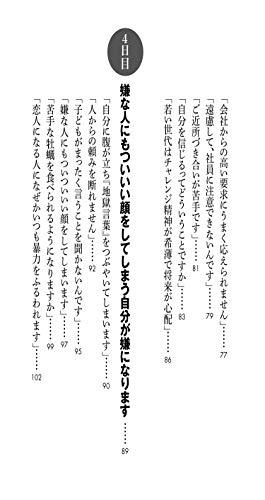 「会社からの高い要求にうまく応えられません」……77
「遠慮して、社員に注意できないんです」……79
「ご近所づき合いが苦手です」……81
「自分を信じるってどういうことですか」……83
「若い世代はチャレンジ精神が希薄で将来が心配」……86
4日目
嫌な人にもついいい顔をしてしまう自分が嫌になります……89
「自分に腹が立ち『地獄言葉』をつぶやいてしまいます」……90
「人からの頼みを断れません」……92
「子どもがまったく言うことを聞かないんです」……95
「嫌な人にもついついいい顔をしてしまいます」……97
「苦手な牡蠣を食べられるようになりますか」……99
「恋人になる人になぜかいつも暴力をふるわれます」……102